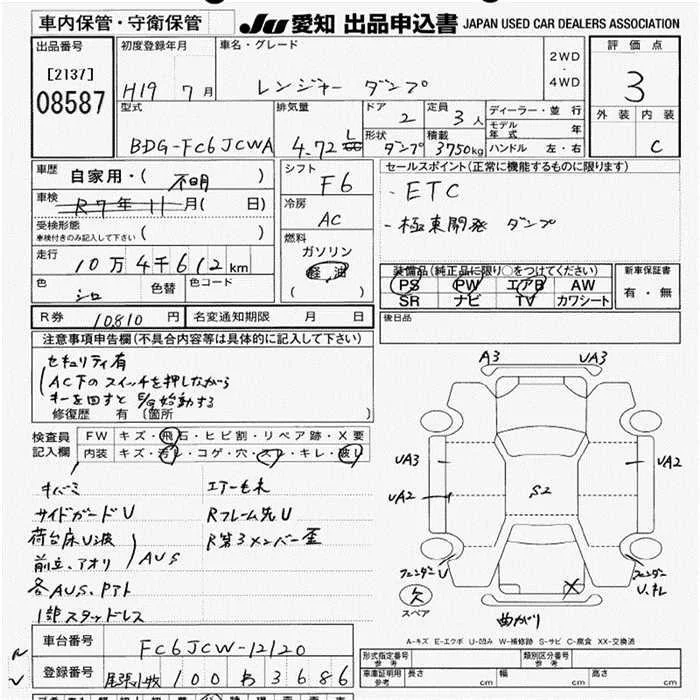 車内保管・守衛保管
JU 愛知 出品申込書 JAPAN USED CAR DEALERS ASSOCIATION
出品番号
[2137]
08587
初度登録年月
H19 7月
車名・グレード
レンジャー ダンプ
2WD
・
4WD
評価点
3
外装 内装
C
型式
BDG-FC6JCWA
排気量
4.72 L
ドア
2
定員
3人
形状
ダンプ
積載
3750kg
ディーラー・並行
モデル年式 年
ハンドル 左・右
車歴
自家用・( 不明 )
車検
R7年11月( 日)
受検形態
車検付きのみ記入して下さい ( )
走行
10万4千612km
色
シロ
色替
色コード
シフト
F6
冷房
AC
燃料
ガソリン
軽油
( )
セールスポイント(正常に機能するものに限ります)
・ETC
・極東開発 ダンプ
装備品(純正品に限り○をつけてください)
PS PW エアB AW
SR ナビ TV カワシート
新車保証書
有・無
R券 10810円
名変通知期限 月 日
後日品
注意事項申告欄(不具合内容等は具体的に記入して下さい)
セキュリティ有
ACTのスイッチを押しながら
キーを回すとE/G始動する
修復歴 有 〔箇所 〕
検査員
記入欄
FW キズ・飛石・ヒビ割・リペア跡・X要
内装 キズ・汚レ・コゲ・穴・スレ・キレ・破レ
サイドガードU
荷台床U
前立、アオリ
AUS
各AUS、Pアト
スタッドレス
Rフレーム先U
R第3メンバー歪
A3 UA3
UA3
UA2
UA2
S2
フェンダーU
フェンダー
U、キレ
曲がり
欠
スペア
A-キズ E-エクボ U-凹み W-補修跡 S-サビ C-腐食 XX-交換済
車台番号
FC6JCW-12120
登録番号
尾張小牧 100 あ 3686
形式指定番号
参考
類別区分番号
参考
車庫証明用
参考
長さ cm
幅 cm
高さ cm